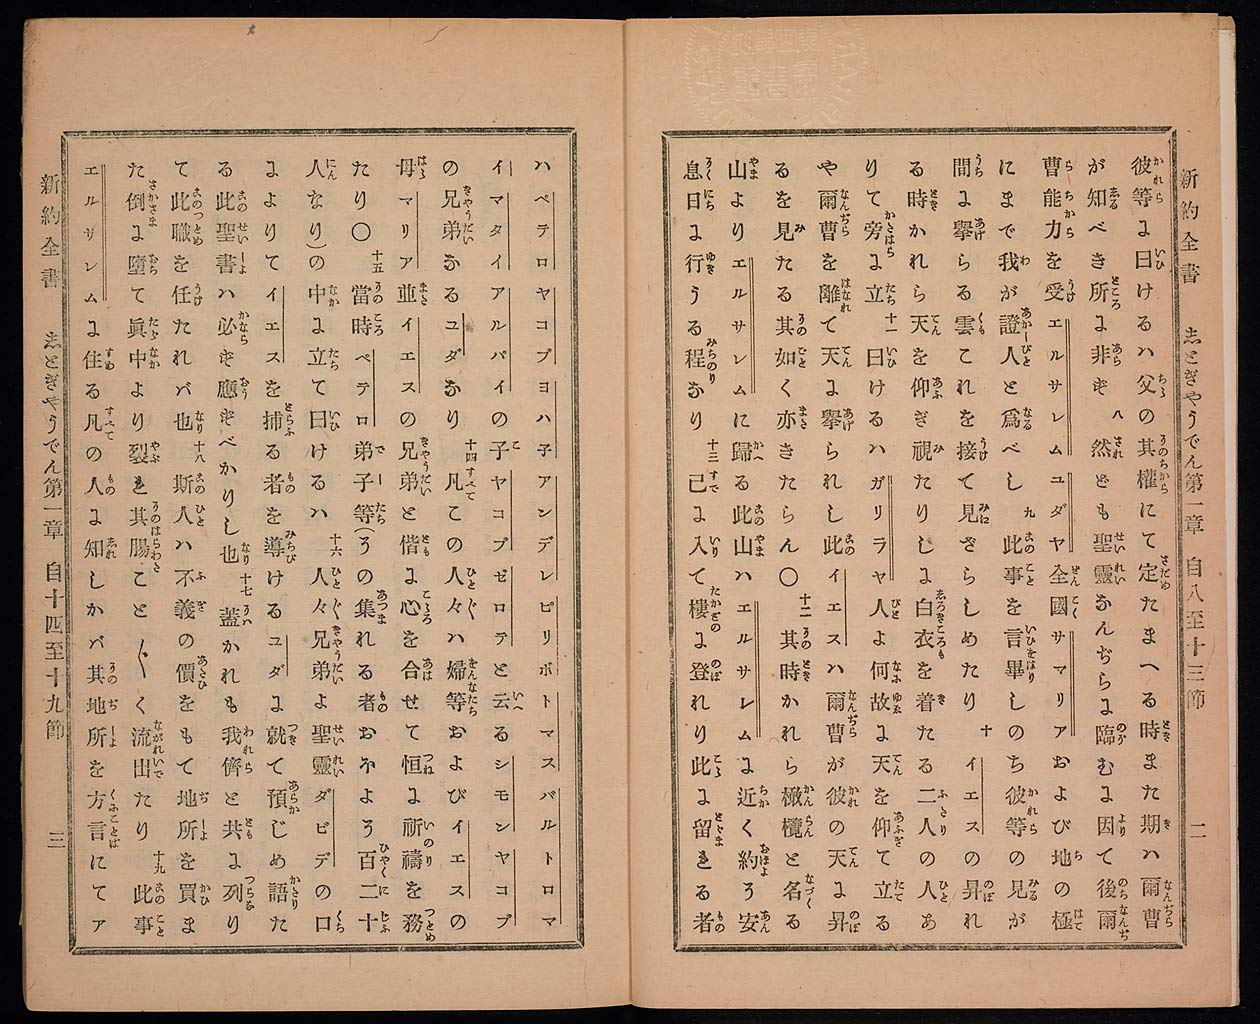 新約全書　志とぎやうでん第一章　自八至十三節　二
彼等に曰けるハ父の其權にて定たまへる時また期ハ爾曹
が知べき所に非ず 八 然ども聖靈なんぢらに臨むに因て後爾
曹能力を受エルサレムユダヤ全國サマリアおよび地の極
にまで我が證人と爲べし 九 此事を言畢しのち彼等の見が
間に擧らる雲これを接て見ざらしめたり 十 イエスの昇れ
る時かれら天を仰ぎ視たりしに白衣を着たる二人の人あ
りて旁に立 十一 曰けるハガリラヤ人よ何故に天を仰て立る
や爾曹を離て天に擧られし此イエスハ爾曹が彼の天に昇
るを見たる其如く亦きたらん〇 十二 其時かれら橄欖と名る
山よりエルサレムに歸る此山ハエルサレムに近く約そ安
息日に行うる程なり 十三 已に入て樓に登れり此に留まる者
ハペテロヤコブヨハ子アンデレピリポトマスバルトロマ
イマタイアルパイの子ヤコブゼロテと云るシモンヤコブ
の兄弟なるユダなり 十四 凡この人々ハ婦等およびイエスの
母マリア並イエスの兄弟と偕に心を合せて恒に祈禱を務
たり〇 十五 當時ペテロ弟子等(その集れる者おほよそ百二十
人なり)の中に立て曰けるハ 十六 人々兄弟よ聖靈ダビデの口
によりてイエスを捕る者を導けるユダに就て預じめ語た
る此聖書ハ必ず應ずべかりし也 十七 蓋かれも我儕と共に列り
て此職を任たれバ也 十八 斯人ハ不義の價をもて地所を買ま
た倒に墮て眞中より裂き其腸こと〲く流出たり 十九 此事
エルサレムに住る凡の人に知しかバ其地所を方言にてア
新約全書　志とぎやうでん第一章　自十四至十九節　三